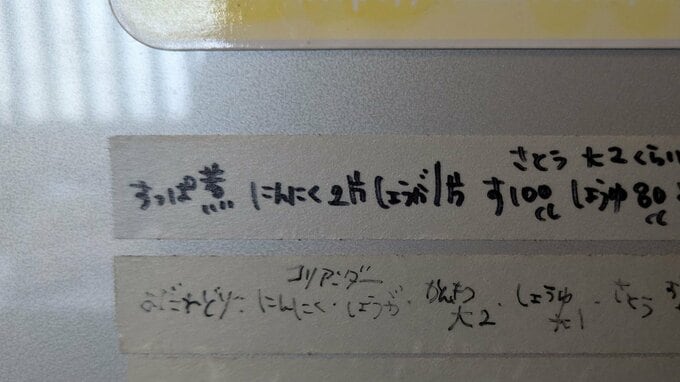 さとう 大2くらい
すっぱ煮 にんにく2片 しょうが1片 す100cc しょうゆ80cc
コリアンダー
よだれどり:にんにく・しょうが・かんきつ大2・しょうゆ大1・さとう